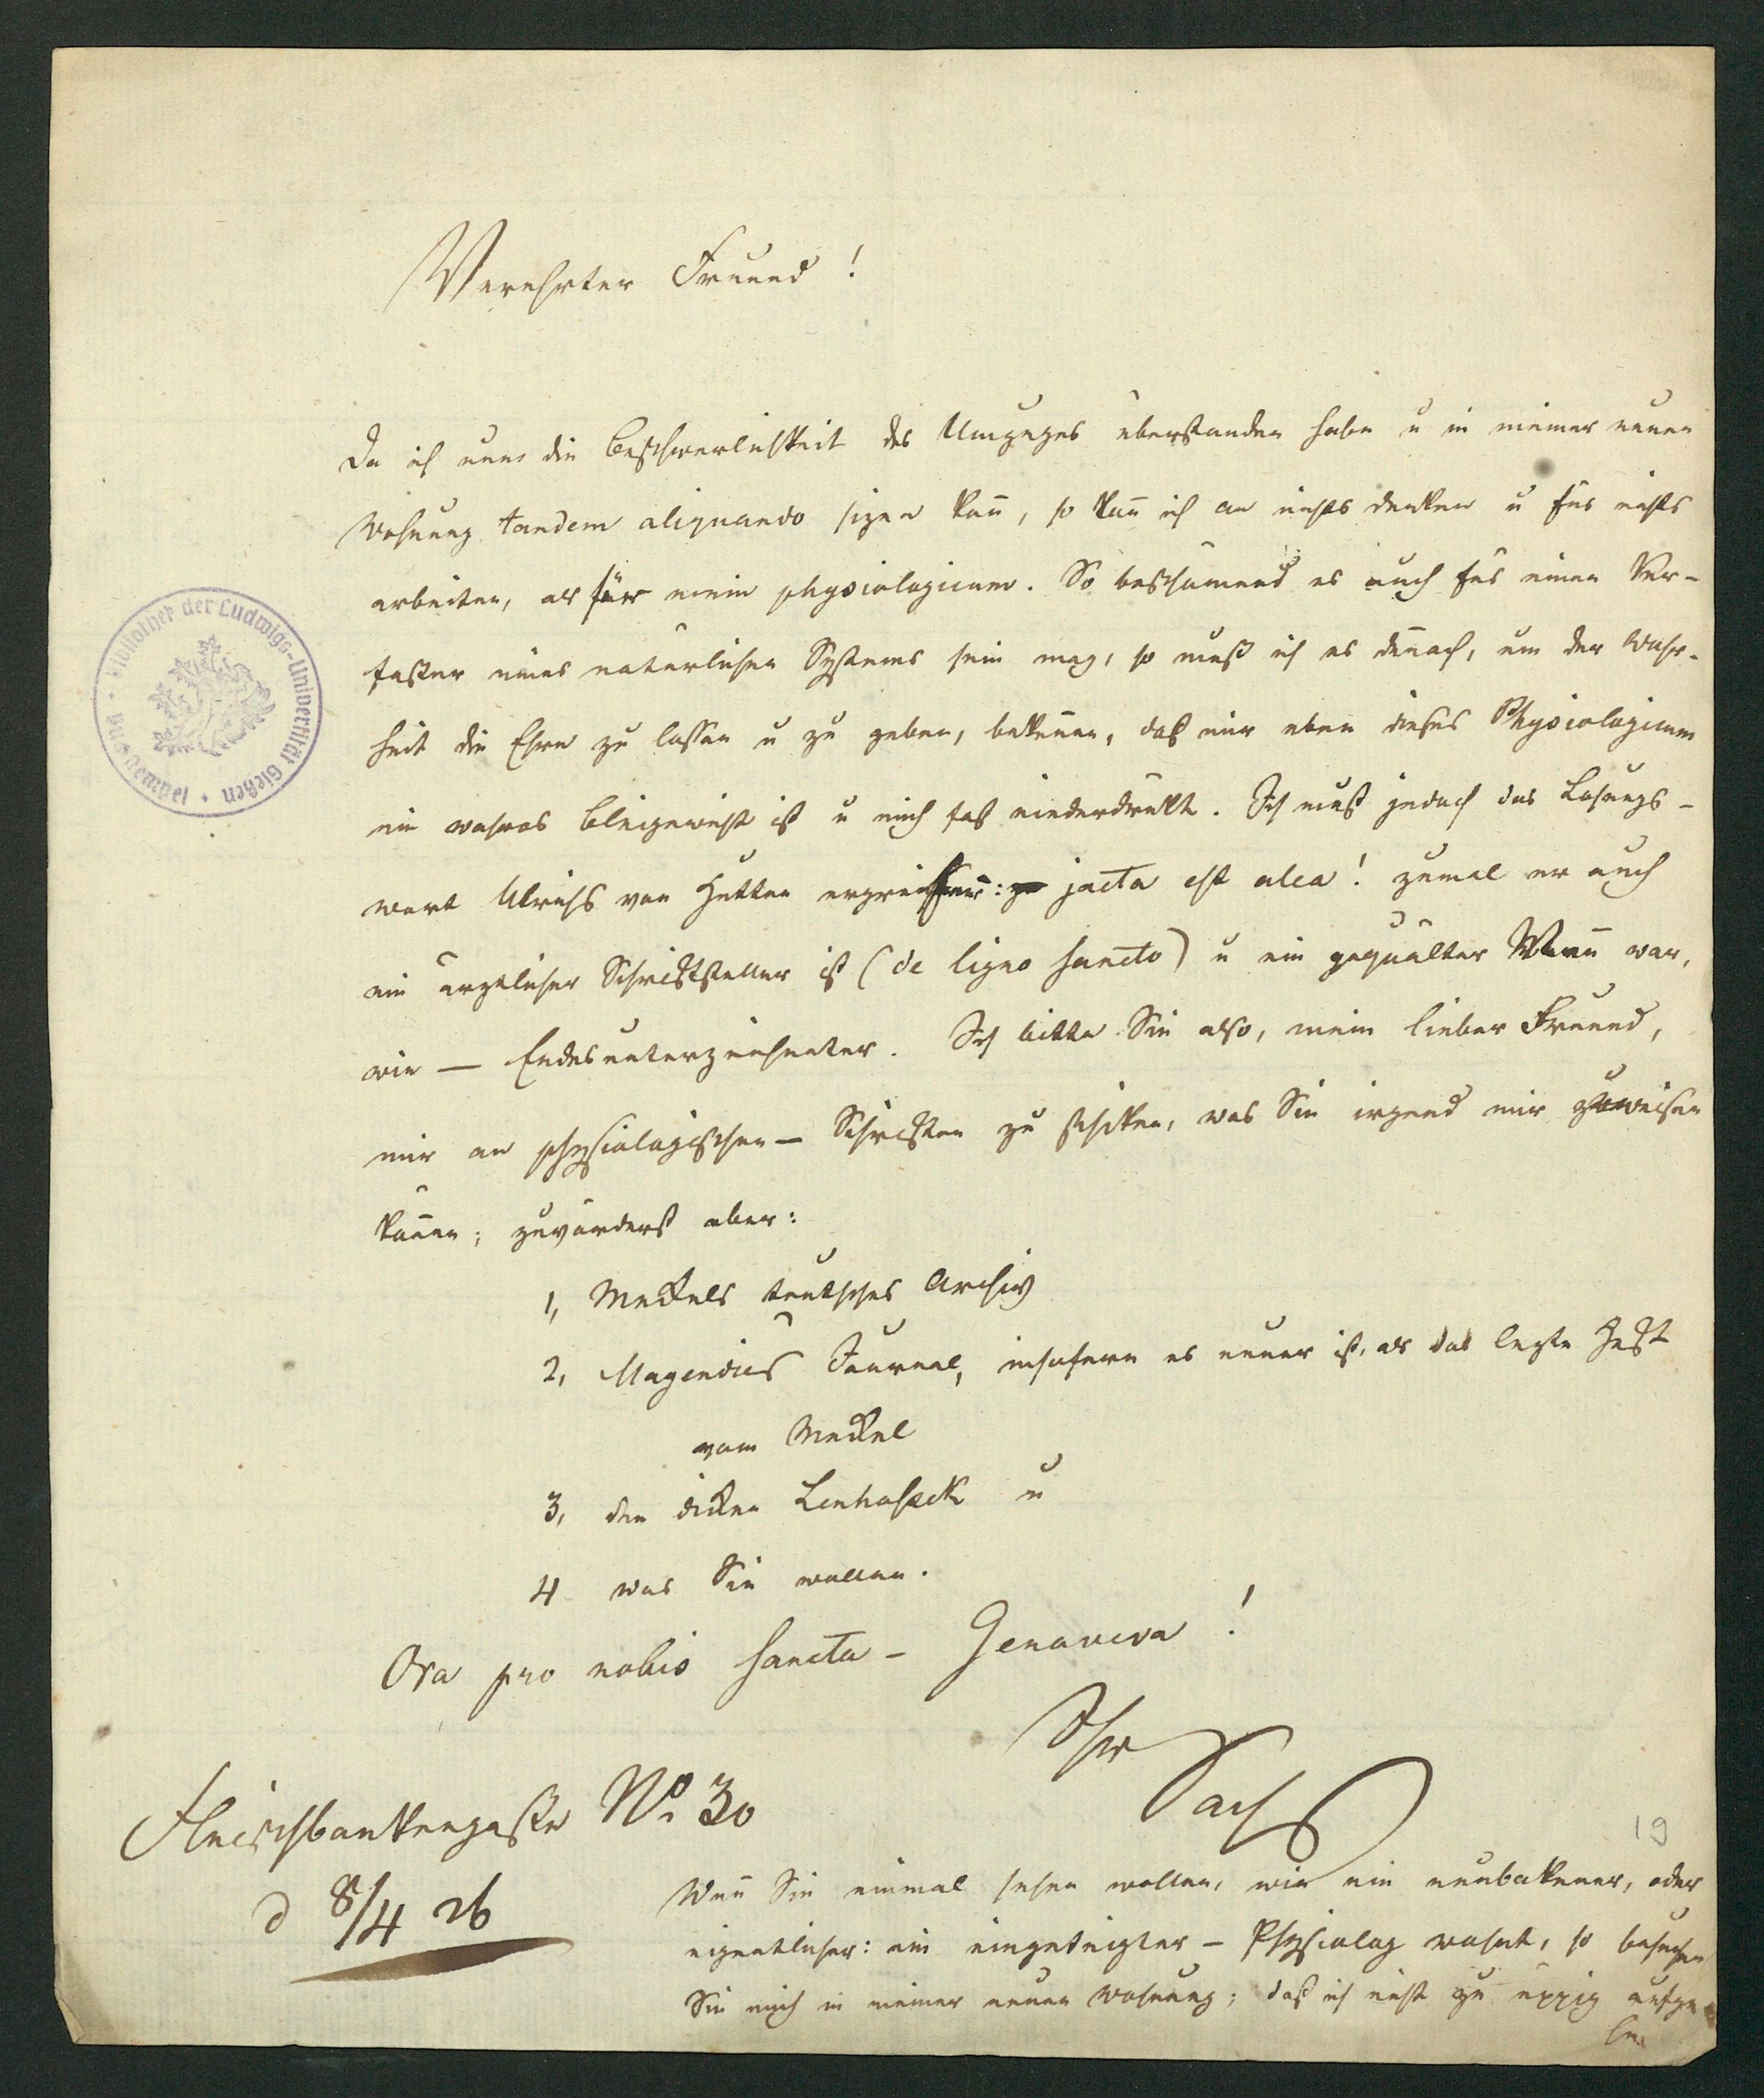 Verehrter Freund!
Da ich nun die Beschwerlichkeit des Umzuges überstanden habe u in meiner neuen
Wohnung tandem aliquando sizen kañ, so kañ ich an nichts denken u für nichts
arbeiten, als für mein physiologicum. So beschämend es auch für einen Ver-
fasser eines natürlichen Systems sein mag, so muß ich es deñoch, um der Wahr-
heit die Ehre zu lassen u zu geben, bekeñen, daß mir eben dieses Physiologicum
ein wahres Bleigewicht ist u mich fast niederdrükt. Ich muß jedoch das Losungs-
wort Ulrichs von Hutten ergreiffen: jacta est alea! zumal er auch
ein ärztlicher Schriftsteller ist (de ligno sancto) u ein gequälter Mañ war,
wie — Endesunterzeichneter. Ich bitte Sie also, mein lieber Freund,
mir an physiologischen — Schriften zu schiken, was Sie irgend mir zuweisen
köñen; zuvörderst aber:
1, Meckels teutsches Archiv
2, Magendies Journal, insofern es neuer ist, als das lezte Heft
vom Meckel
3, den dicken Lenhossek u
4 was Sie wollen.
Ora pro nobis sancta — Genoveva!
Ihr
Sachs
Fleischbänkengasse No 30
d 8/4 26
19
Weñ Sie einmal sehen wollen, wie ein neubakener, oder
eigentlicher: ein eingeteigter — Physiolog wohnt, so besuchen
Sie mich in meiner neuen Wohnung; daß ich nicht zu üppig aufge-
Bibliothek der Ludwigs-Universität Gießen